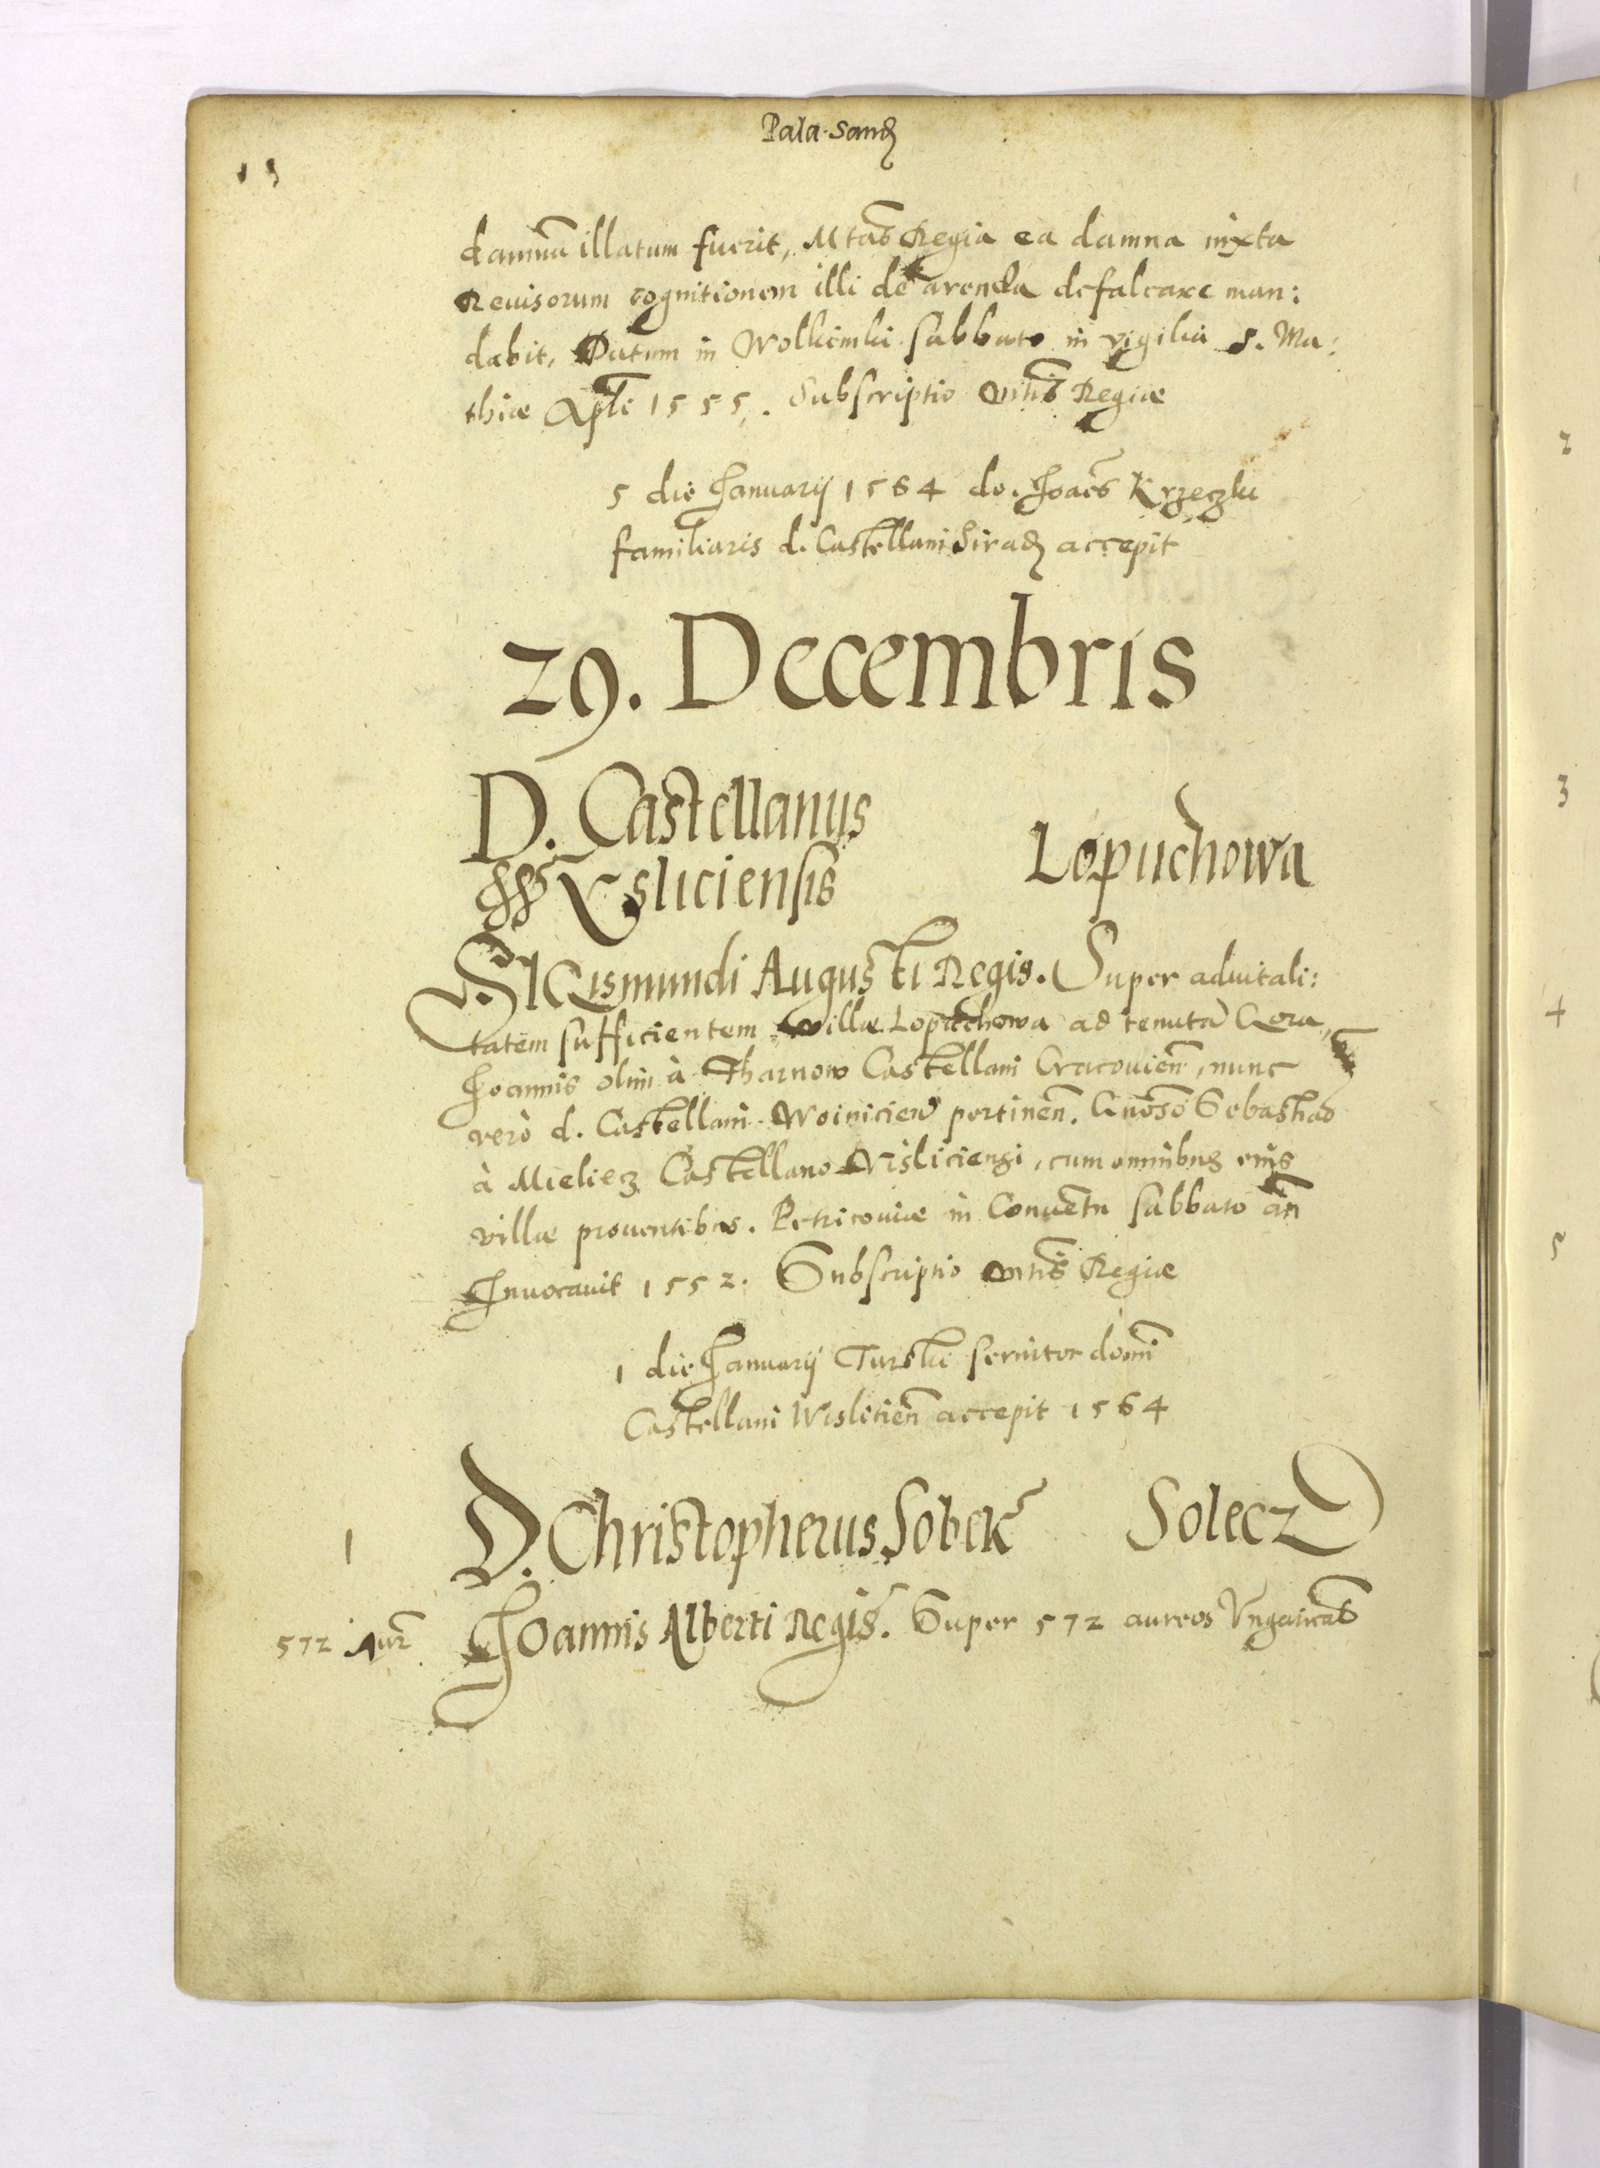 Pala. Sand
damnū illatum fuerit, Mtas Regia ea damna iuxta
Reuisorum cognitionem illi de arenda defalcare man:
dabit, Datum in Wolkinki sabbato in vigilia S. Ma:
thiæ Apli 1555. Subscriptio Mtis Regiæ
5 die Januarij 1564 do. Joães Krzeczki
familiaris d. Castellani Sirad accepit
29. Decembris
D. Castellanus
Vysliciensis
Lopuchowa
Sigismundi Augusti Regis. Super aduitali:
tatem sufficientem villæ Lopuchowa ad tenutā
Joannis olim à Tharnow Castellani Cracouień, nunc
verò d. Castellani Woinicień pertineñ. Gnoso Sebastiao
à Mielecz Castellano Visliciensi, cum omnibus eius
villæ prouentibus. Petricouiæ in Conuētu sabbato añ
Inuocauit 1552. Subscriptio Mtis Regiæ
1 die Januarij Turski seruitor domi
Castellani Wislicień accepit 1564
1
D. Christopherus Sobek
Solecz
572 Aur
Joannis Alberti Regis. Super 572 aureos Vngaricas
2
3
4
5